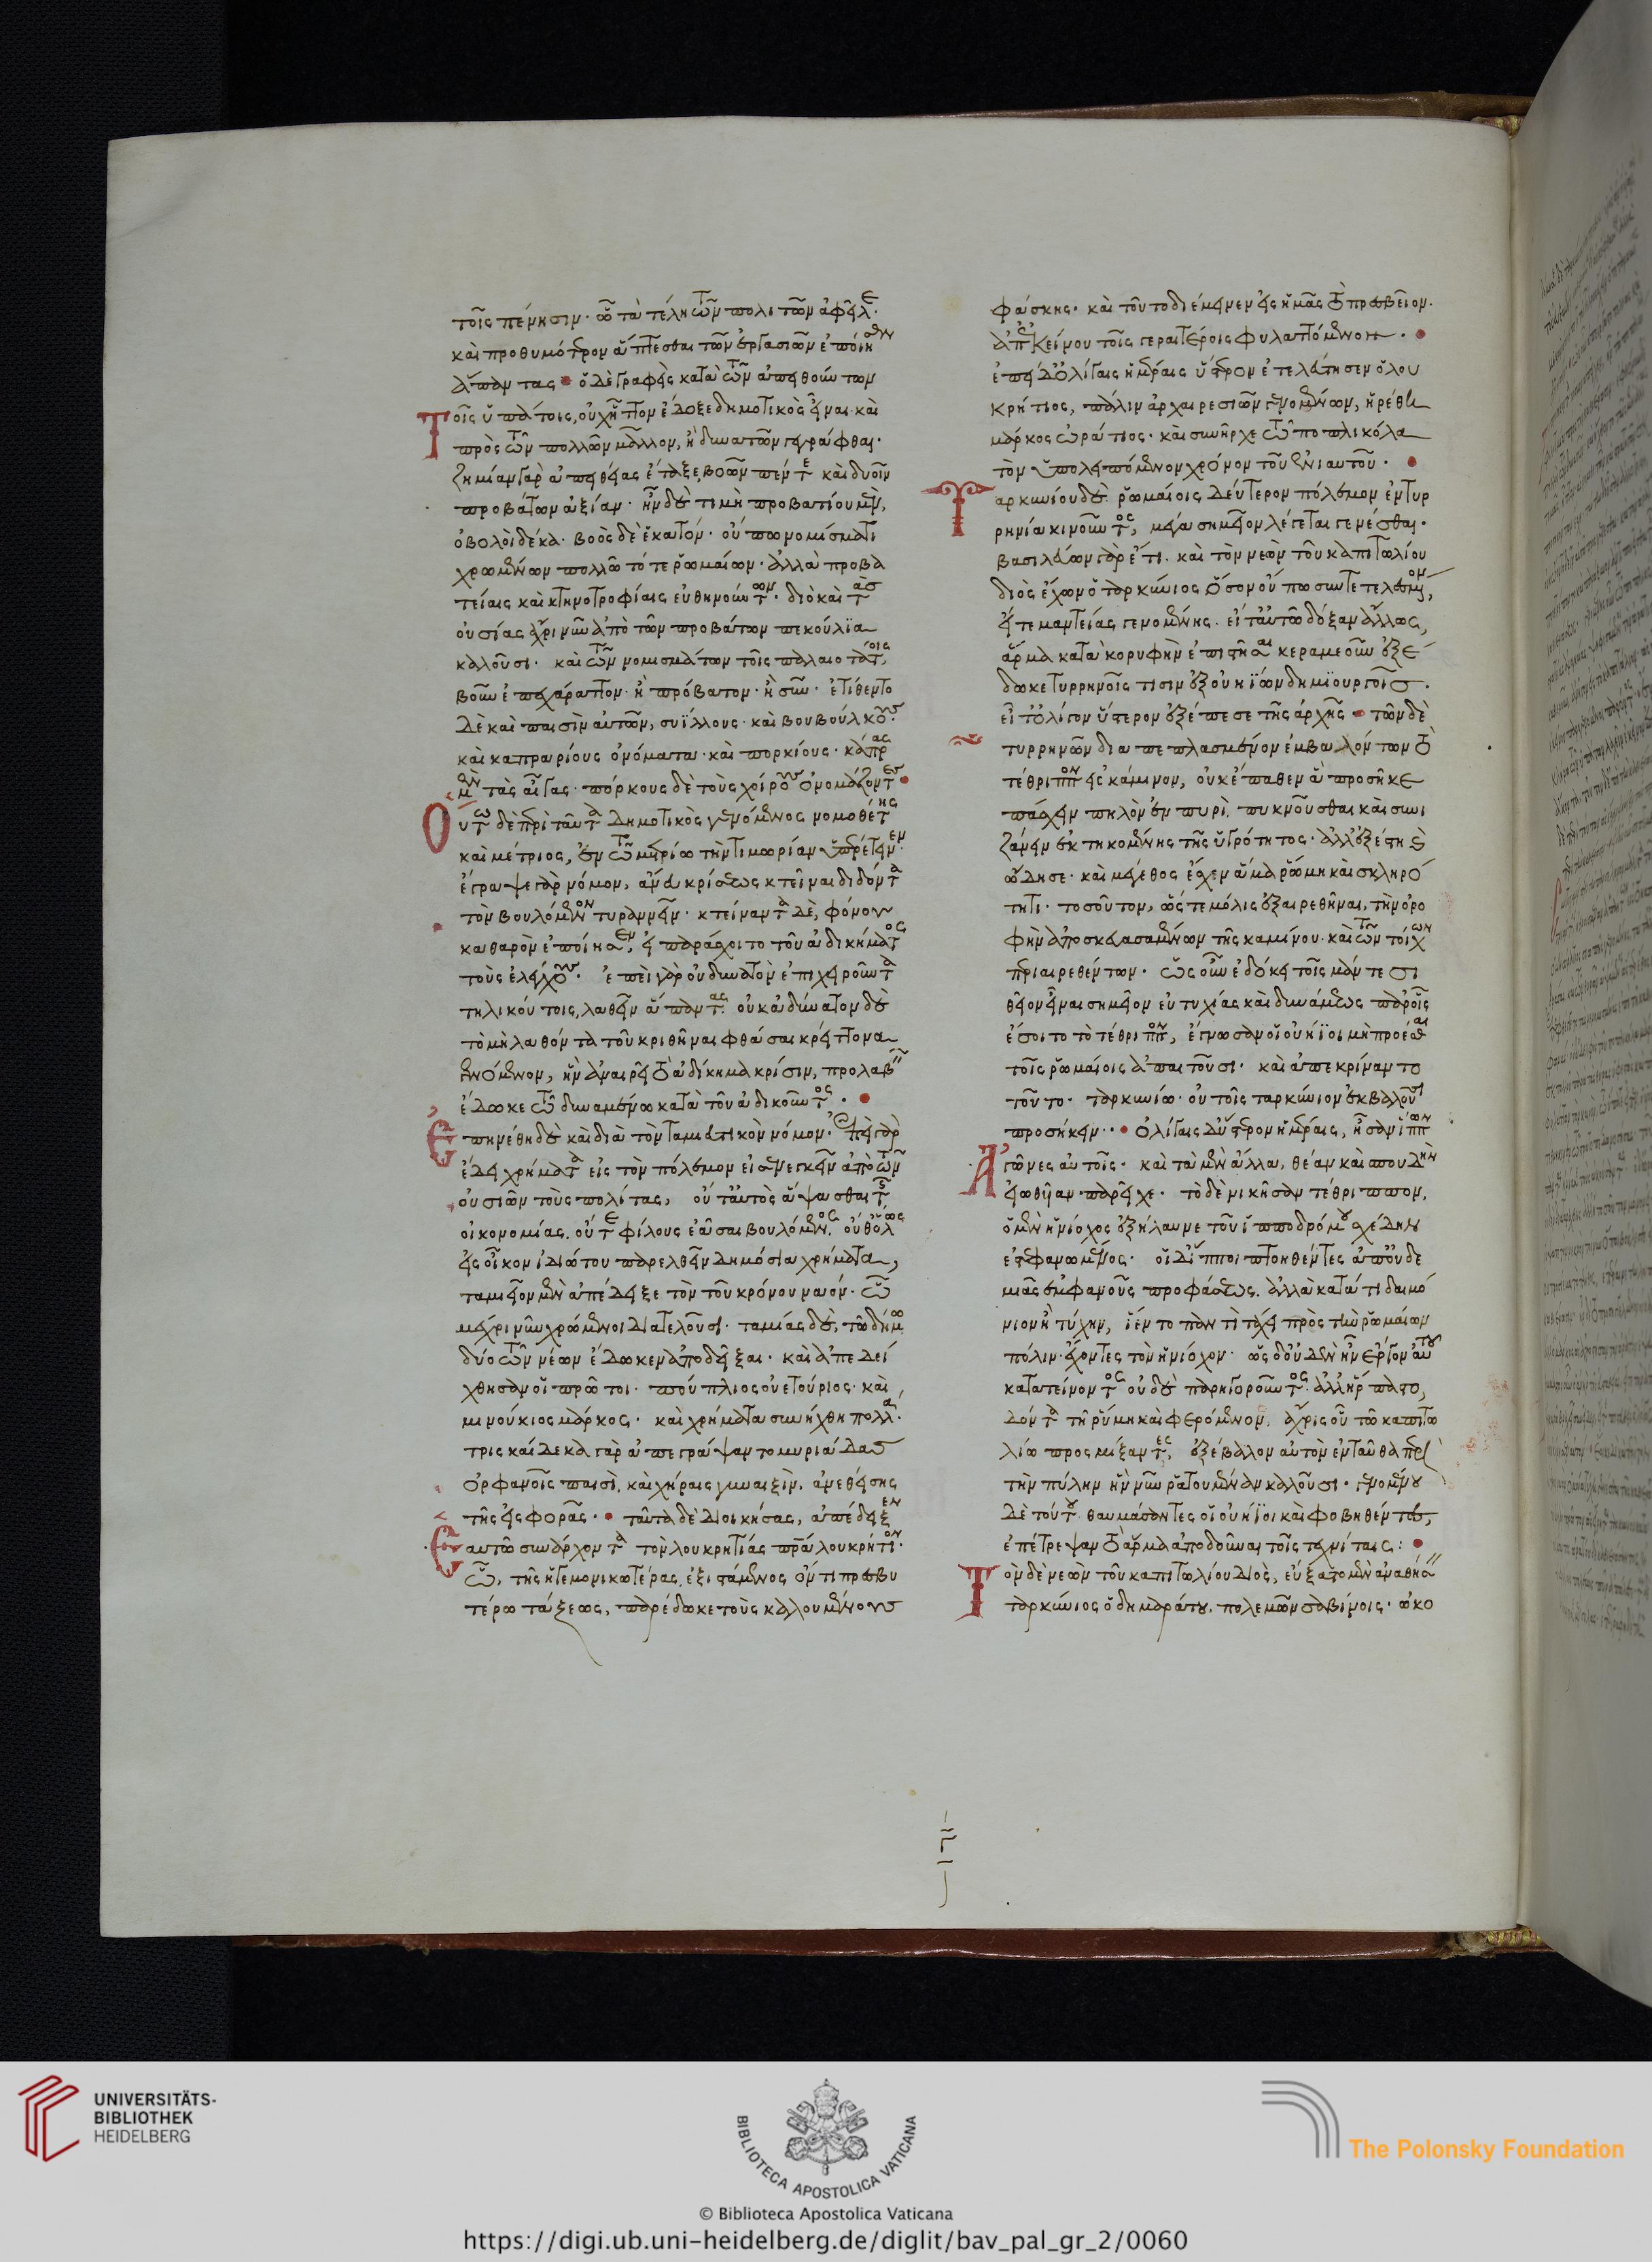 τοῖς πένησιν. ὧ τὰ τέλη τῶν πολιτῶν ἀφεῖλε.
καὶ προθυμότερον ἅπτεσθαι τῶν ἐργασιῶν ἐποίησεν
ἅπαντας ὁ δὲ γραφεὶς κατὰ τῶν ἀπειθούντων
Τοῖς ὑπάτοις, οὐχ ἧττον ἔδοξε δημοτικὸς εἶναι. καὶ
πρὸς τῶν πολλῶν μᾶλλον, ἢ δυνατῶν γεγράφθαι.
ζημίαν γὰρ ἀπειθείας ἔταξε, βοῶν πέντε καὶ δυοῖν
προβάτων ἀξίαν. ἦν δὲ τιμὴ προβατίου μὲν,
ὀβολοὶ δέκα. βοὸς δὲ ἑκατόν. οὔπω νομίσματι
χρωμένων πολλῶ τότε ῥωμαίων. ἀλλὰ προβα
τείαις καὶ κτηνοτροφίαις εὐθηνούντων. διὸ καὶ τὰς
οὐσίας ἄχρι νῦν ἀπὸ τῶν προβάτων πεκούλια
καλοῦσι. καὶ τῶν νομισμάτων τοῖς παλαιοτάτοις,
βοῦν ἐπεχάραττον. ἢ πρόβατον. ἢ σῦν. ἐτίθεντο
δὲ καὶ παισὶν αὐτῶν, συΐλλους. καὶ βουβούλκους.
καὶ καπραρίους ὀνόματα. καὶ πορκίους. κάπρας
μὲν τὰς αἶγας. πόρκους δὲ τοὺς χοίρους ὀνομάζοντες
Οὕτω δὲ περὶ ταῦτα δημοτικὸς γενόμενος νομοθέτης
καὶ μέτριος, ἐν τῶ μετρίω τὴν τιμωρίαν ὑπερέτεινεν.
ἔγραψε γὰρ νόμον, ἄνευ κρίσεως κτεῖναι διδόντα
τὸν βουλόμενον τυραννεῖν. κτείναντα δὲ, φόνου
καθαρὸν ἐποίησεν, εἰ παράσχοιτο τοῦ ἀδικήματος
τοὺς ἐλέγχους. ἐπεὶ γὰρ οὐ δυνατὸν ἐπιχειροῦντα
τηλικούτοις, λαθεῖν ἅπαντας. οὐκ ἀδύνατον δὲ
τὸ μὴ λαθόντα τοῦ κριθῆναι φθάσαι κρείττονα
γενόμενον, ἣν ἀναιρεῖ τὸ ἀδίκημα κρίσιν, προλαβεῖν
ἔδωκε τῶ δυναμένω κατὰ τοῦ ἀδικοῦντος.
Ἐπηνέθη δὲ καὶ διὰ τὸν ταμιευτικὸν νόμον. ἐπεὶ γὰρ
ἔδει χρήματα εἰς τὸν πόλεμον εἰσενεγκεῖν ἀπὸ τῶν
οὐσιῶν τοὺς πολίτας, οὔτ' αὐτὸς ἅψασθαι τῆς
οἰκονομίας. οὔτε φίλους ἐᾶσαι βουλόμενος. οὔθ' ὅλως
εἰς οἶκον ἰδιώτου παρελθεῖν δημόσια χρήματα,
ταμιεῖον μὲν ἀπέδειξε τὸν τοῦ κρόνου ναόν. ὧ
μέχρι νῦν χρώμενοι διατελοῦσι. ταμίας δὲ, τῶ δήμω
δύο τῶν νέων ἔδωκεν ἀποδεῖξαι. καὶ ἀπεδεί
χθησαν οἱ πρῶτοι. πούπλιος οὐετούριος. καὶ
μινούκιος μάρκος. καὶ χρήματα συνήχθη πολλὰ.
τρισκαίδεκα γὰρ ἀπεγράψαντο μυριάδας
ὀρφανοῖς παισὶ, καὶ χήραις γυναιξὶν, ἀνεθείσης
τῆς εἰσφορᾶς. ταῦτα δὲ διοικήσας, ἀπέδειξεν
Ἑαυτῶ συνάρχοντα τὸν λουκρητίας πατέρα λουκρήτιον.
ὧ, τῆς ἡγεμονικωτέρας ἐξιστάμενος ὄντι πρεσβυ
τέρω τάξεως, παρέδωκε τοὺς καλουμένους
φάσκης. καὶ τοῦτο διέμεινεν εἰς ἡμᾶς τὸ πρεσβεῖον.
ἀπ' ἐκείνου τοῖς γεραιτέροις φυλαττόμενον.
ἐπεὶ δ' ὀλίγαις ἡμέραις ὕστερον ἐτελεύτησεν ὁ λου
κρήτιος, πάλιν ἀρχαιρεσιῶν γενομένων, ἡρέθη
μάρκος ὡράτιος. καὶ συνῆρχε τῶ ποπλικόλα
τὸν ὑπολειπόμενον χρόνον τοῦ ἐνιαυτοῦ.
Ταρκυνίου δὲ ῥωμαίοις δεύτερον πόλεμον ἐν τυρ
ρηνία κινοῦντος, μέγα σημεῖον λέγεται γενέσθαι.
βασιλεύων γὰρ ἔτι. καὶ τὸν νεὼν τοῦ καπιτωλίου
διὸς ἔχων ὁ ταρκύνιος ὅσον οὔπω συντετελεσμένον,
εἴτε μαντείας γενομένης. εἴτ' αὐτῶ δόξαν ἄλλως,
ἅρμα κατὰ κορυφὴν ἐπιστῆσαι κεραμεοῦν ἐξέ
δωκε τυρρηνοῖς τισὶν ἐξ οὐηΐων δημιουργοῖς.
εἶτ' ὀλίγον ὕστερον ἐξέπεσε τῆς ἀρχῆς τῶν δὲ
τυρρηνῶν διαπεπλασμένον ἐμβαλόντων τὸ
τέθριππον εἰς κάμινον, οὐκ ἔπαθεν ἃ προσῆκε
πάσχειν πηλὸν ἐν πυρὶ. πυκνοῦσθαι καὶ συνι
ζάνειν ἐκτηκομένης τῆς ὑγρότητος. ἀλλ' ἐξέστη καὶ
ᾤδησε. καὶ μέγεθος ἔσχεν ἅμα ῥώμη καὶ σκληρό
τητι. τοσοῦτον, ὥστε μόλις ἐξαιρεθῆναι, τὴν ὀρο
φὴν ἀποσκευασαμένων τῆς καμίνου. καὶ τῶν τοίχων
περιαιρεθέντων. ὡς οὖν ἐδόκει τοῖς μάντεσι
θεῖον εἶναι σημεῖον εὐτυχίας καὶ δυνάμεως παρ' οἷς
ἔσοιτο τὸ τέθριππον, ἔγνωσαν οἱ οὐήϊοι μὴ προέσθαι
τοῖς ῥωμαίοις ἀπαιτοῦσι. καὶ ἀπεκρίναντο
τοῦτο. ταρκυνίω. οὐ τοῖς ταρκύνιον ἐκβαλοῦσι
προσήκειν. ὀλίγαις δ' ὕστερον ἡμέραις, ἦσαν ἵππων
Ἀγῶνες αὐτοῖς. καὶ τὰ μὲν ἄλλα, θέαν καὶ σπουδὴν
εἰωθυῖαν παρεῖχε. τὸ δὲ νικῆσαν τέθριππον,
ὁ μὲν ἡνίοχος ἐξήλαυνε τοῦ ἱπποδρόμου σχέδην
ἐστεφανωμένος. οἱ δ' ἵπποι πτοηθέντες ἀπ' οὐδε
μιᾶς ἐμφανοῦς προφάσεως. ἀλλὰ κατά τι δαιμό
νιον ἢ τύχην, ἵεντο παντὶ τάχει πρὸς τὴν ῥωμαίων
πόλιν. ἔχοντες τὸν ἡνίοχον. ὡς δ' οὐδὲν ἦν ἔργον αὐτοῦ
κατατείνοντος οὐδὲ παρηγοροῦντος. ἀλλ' ἥρπαστο,
δόντα τῆ ῥύμη καὶ φερόμενον. ἄχρις οὗ τῶ καπιτω
λίω προσμίξαντες, ἐξέβαλον αὐτὸν ἐνταῦθα παρὰ
τὴν πύλην ἣν νῦν ῥατουμέναν καλοῦσι. γενομένου
δὲ τούτου. θαυμάσαντες οἱ οὐήϊοι καὶ φοβηθέντες,
ἐπέτρεψαν τὸ ἅρμα ἀποδοῦναι τοῖς τεχνίταις:
Τὸν δὲ νεὼν τοῦ καπιτωλίου διὸς, εὔξατο μὲν ἀναθήσειν
ταρκύνιος ὁ δημαράτου. πολεμῶν σαβίνοις. ᾠκο
UNIVERSITÄTS-
BIBLIOTHEK
HEIDELBERG
BIBLIOTECA APOSTOLICA VATICANA
The Polonsky Foundation
© Biblioteca Apostolica Vaticana
https://digi.ub.uni-heidelberg.de/diglit/bav_pal_gr_2/0060